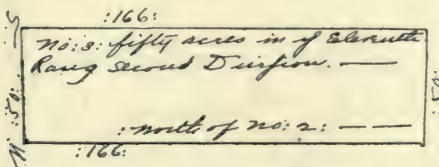 :166:
S
no: 3: fifty acres in ye Eleventh
Rang second Division. —
:50:
:50:
: north of no: 2: — —
N
:166: